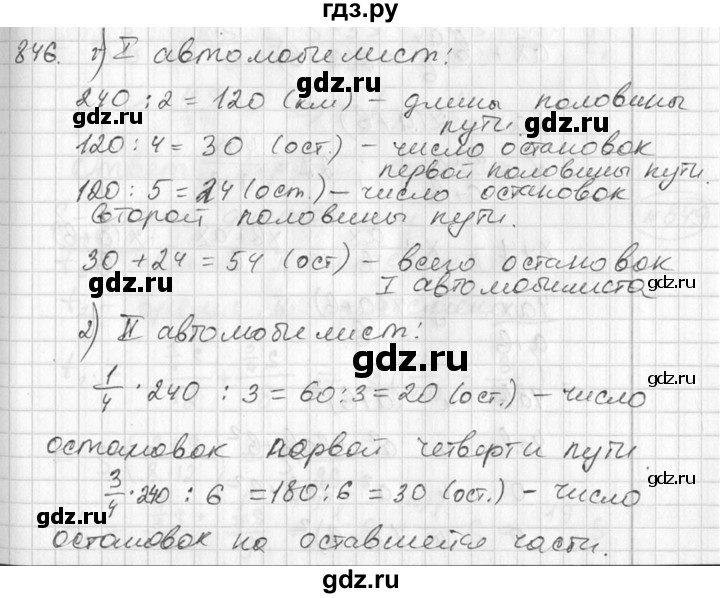 гдз.ру
846. 1) I автомобилист:
gdz.ru gdz.ru
240 : 2 = 120 (км) – длины половины
пути.
gdz.ru gdz.ru
120 : 4 = 30 (ост.) – число остановок
первой половины пути.
120 : 5 = 24 (ост.) – число остановок
второй половины пути.
gdz.ru gdz.ru
30 + 24 = 54 (ост) – всего остановок
gdz.ru gdz.ru
I автомобилиста
2) II автомобилист:
gdz.ru gdz.ru
1/4 · 240 : 3 = 60 : 3 = 20 (ост.) – число
gdz.ru gdz.ru
остановок первой четверти пути
gdz.ru gdz.ru
3/4 · 240 : 6 = 180 : 6 = 30 (ост.) – число
gdz.ru gdz.ru
остановок на оставшейся части.
гдз.ру